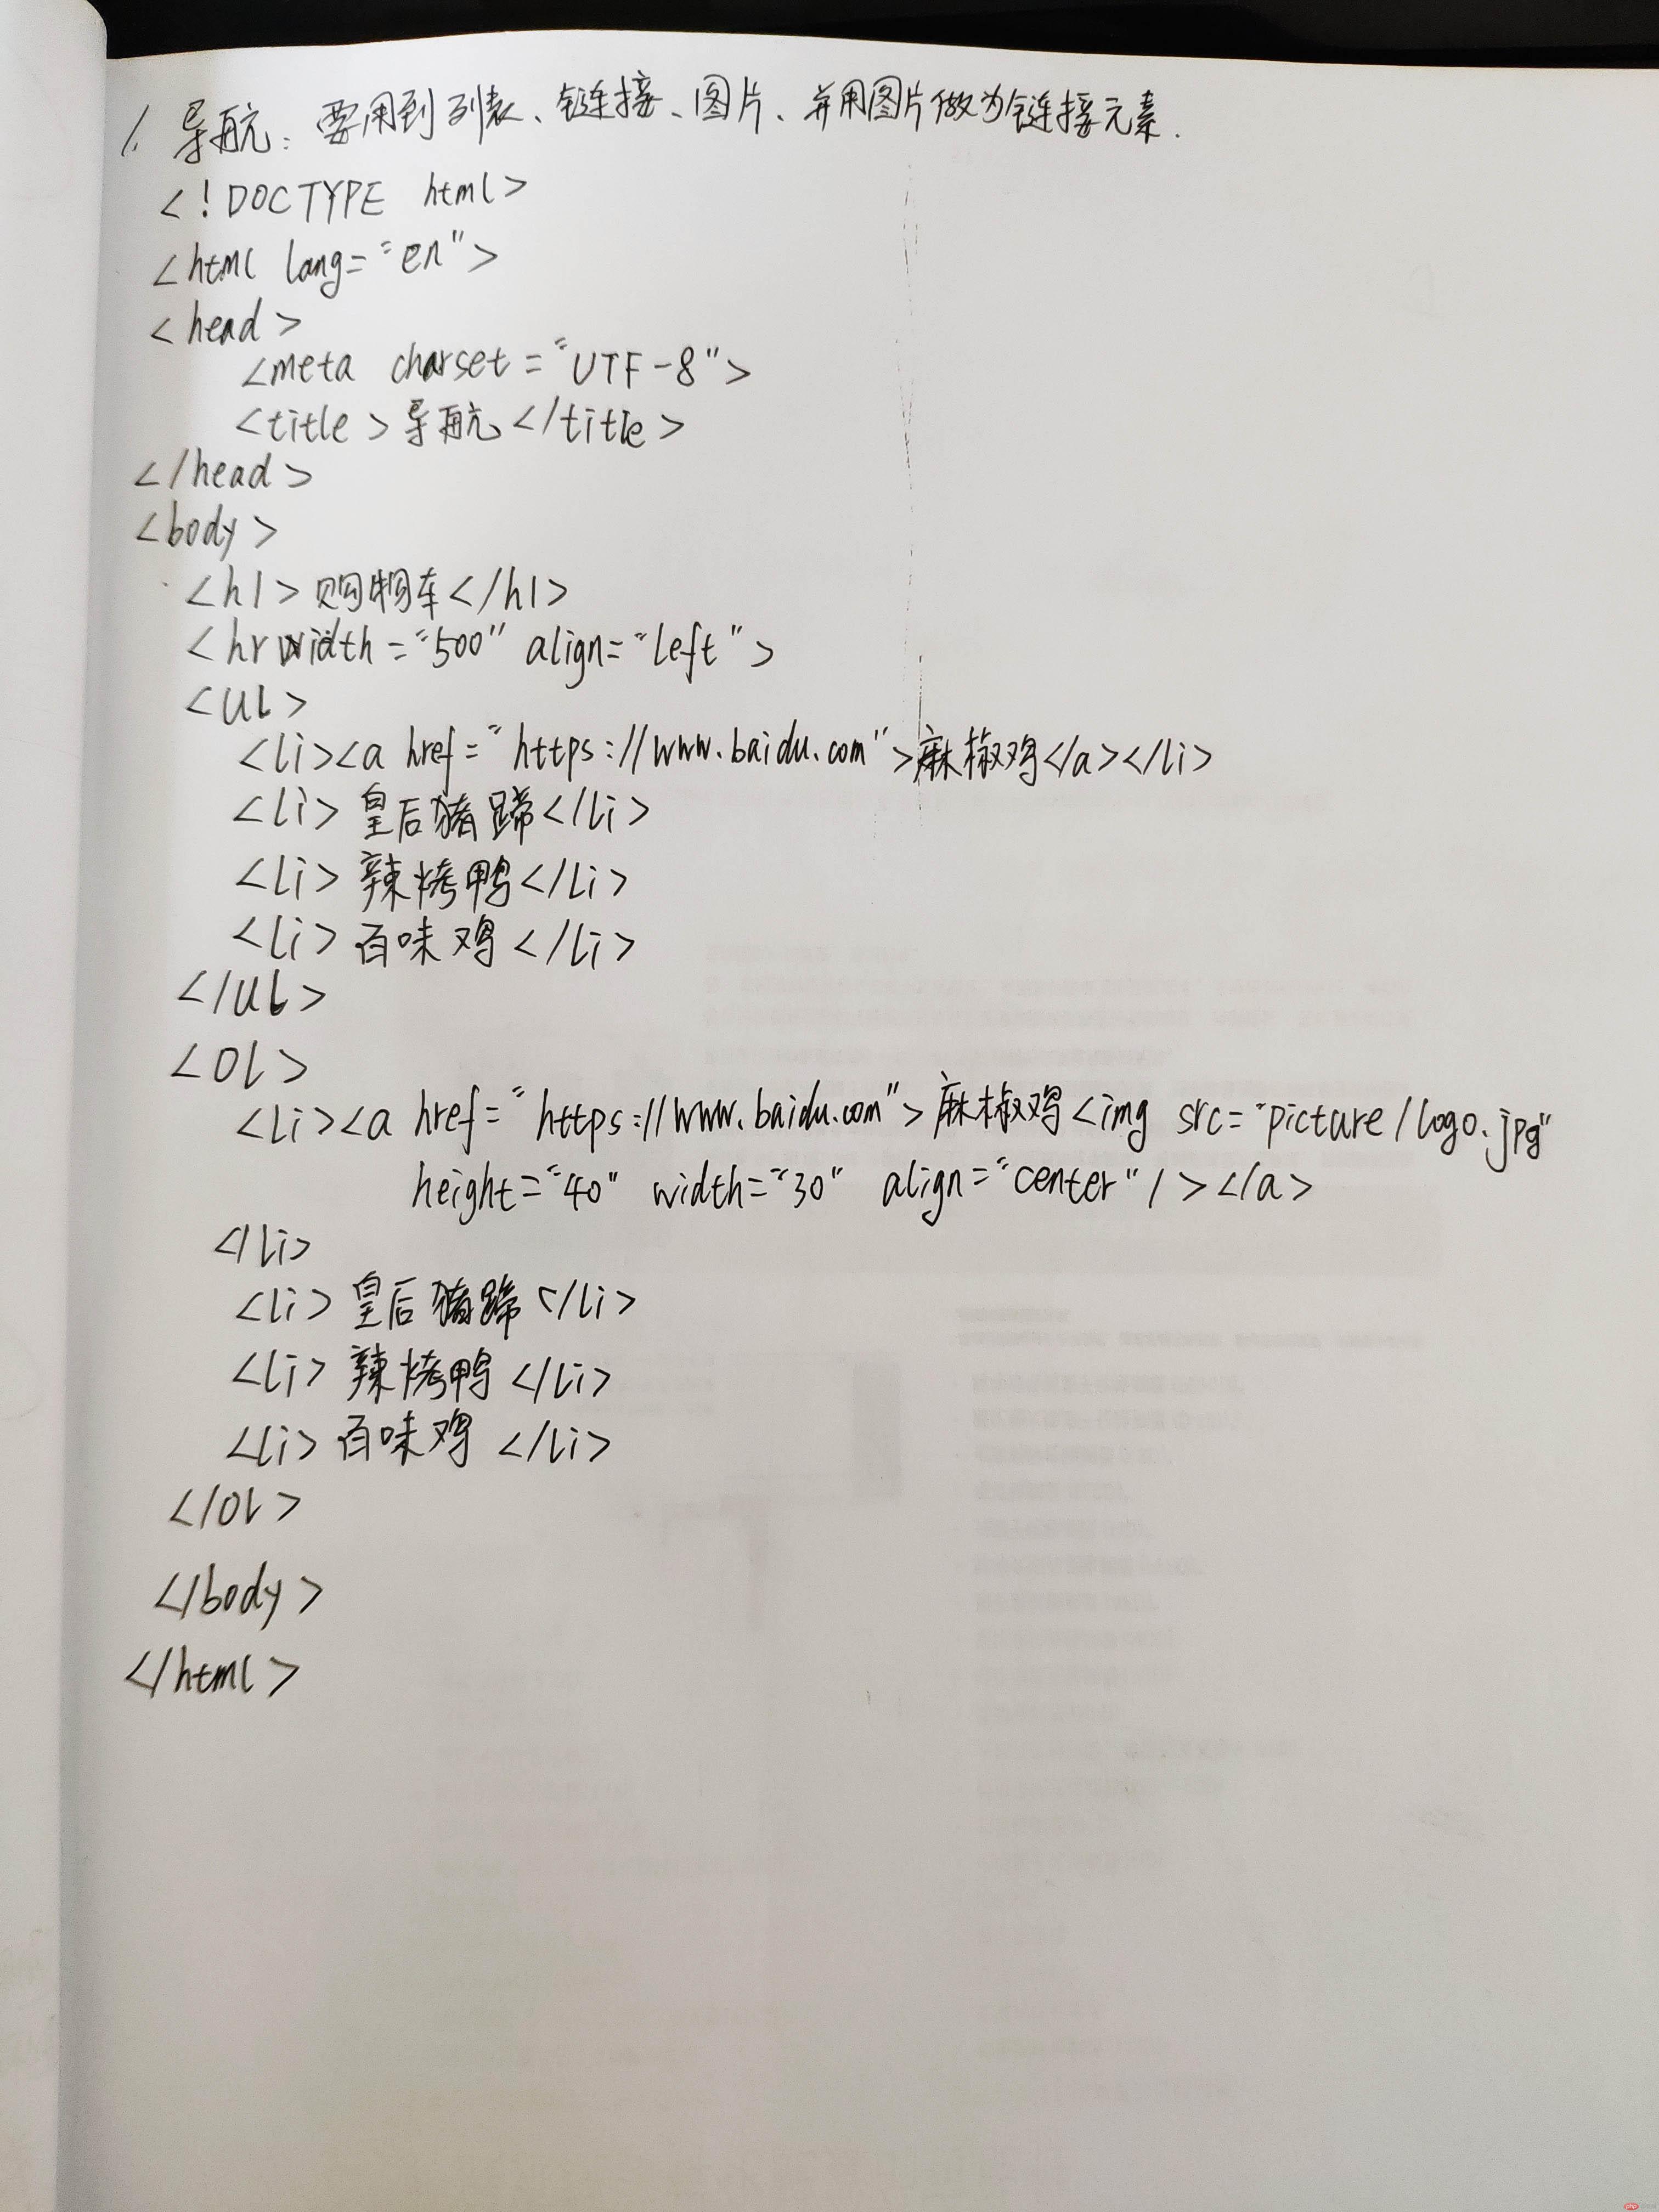 1. 导航：要用到列表、链接、图片、并用图片做为链接元素.
<!DOCTYPE html>
<html lang="en">
<head>
<meta charset="UTF-8">
<title>导航</title>
</head>
<body>
<h1>购物车</h1>
<hr width="500" align="left">
<ul>
<li><a href="https://www.baidu.com">麻椒鸡</a></li>
<li>皇后猪蹄</li>
<li>辣烤鸭</li>
<li>百味鸡</li>
</ul>
<ol>
<li><a href="https://www.baidu.com">麻椒鸡<img src="picture/logo.jpg"
height="40" width="30" align="center"/></a>
</li>
<li>皇后猪蹄</li>
<li>辣烤鸭</li>
<li>百味鸡</li>
</ol>
</body>
</html>